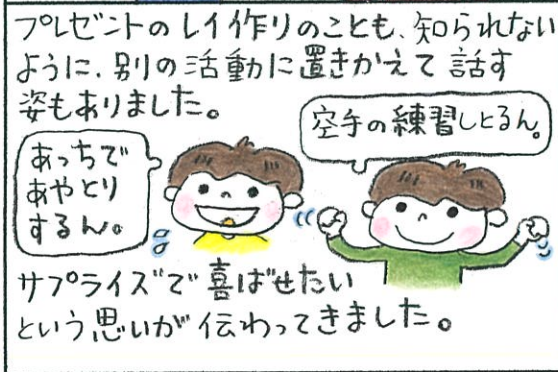 プレゼントのレイ作りのことも、知られない
ように、別の活動に置きかえて話す
姿もありました。
空手の練習しとるん。
あっちで
あやとり
するん。
サプライズで喜ばせたい
という思いが伝わってきました。